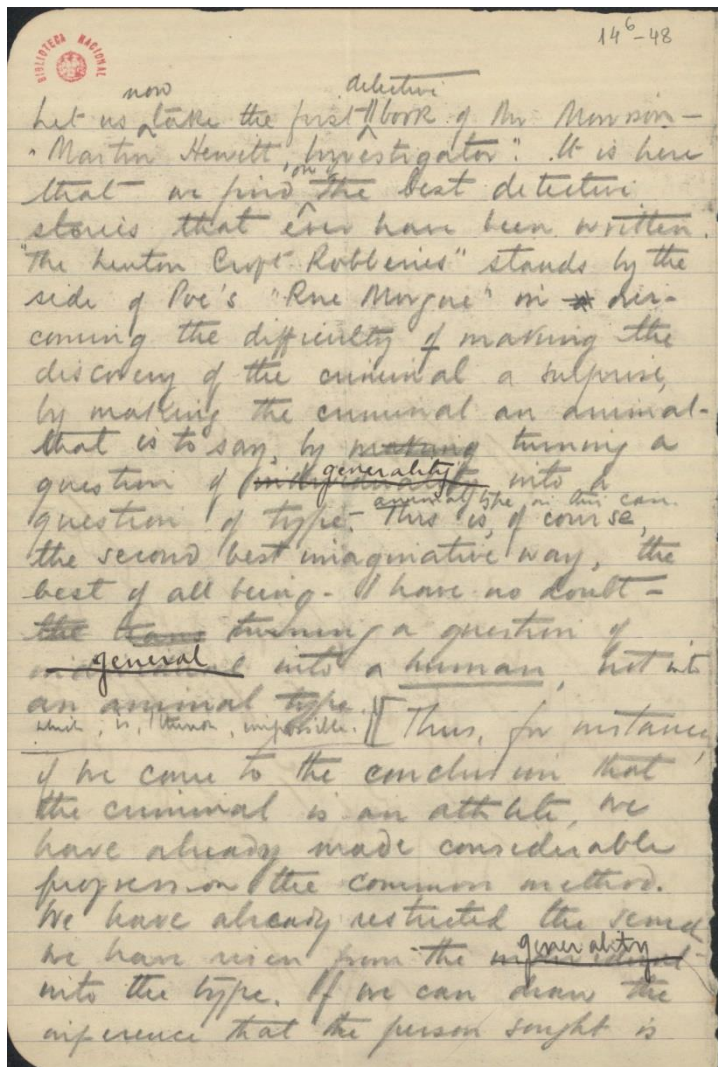 14 6 - 48
BIBLIOTECA NACIONAL
now detective
Let us take the first book of Mr Morrison -
"Martin Hewitt, Investigator". It is here
one of
that we find the best detective
stories that ever have been written.
"The Lenton Croft Robberies" stands by the
side of Poe's "Rue Morgue" in over-
coming the difficulty of making the
discovery of the criminal a surprise,
by making the criminal an animal -
that is to say, by making turning a
generality
question of individuality into a
animal type in this case.
question of type. This is, of course,
the second best imaginative way, the
best of all being - I have no doubt -
the turning a question of
general
individual into a human, not into
an animal type.
which, is, I think, impossible. [Thus, for instance,
if we come to the conclusion that
the criminal is an athlete, we
have already made considerable
progress on the common method.
We have already restricted the search
generality
We have risen from the individual
into the type. If we can draw the
inference that the person sought is